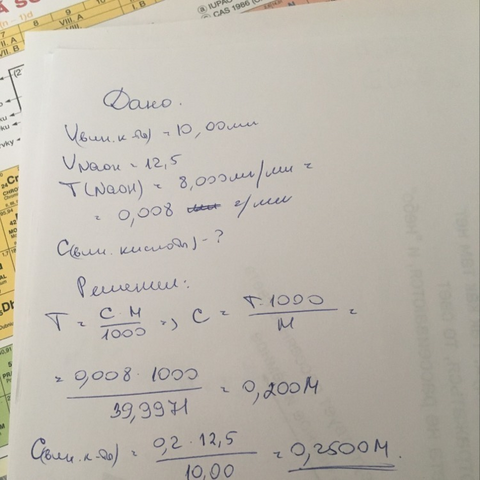 8 9 10
VIII A
VIII B
I B
IUPAC
CAS 1986
24 Cr
Дано.
V(вин. к-ты) = 10,00мл
V NaOH = 12,5
T(NaOH) = 8,000мг/мл =
= 0,008 г/мл
C(вин. кислоты) - ?
Решение:
T = C·M / 1000 => C = T·1000 / M =
= 0,008·1000 / 39,9971 = 0,200М
C(вин. к-ты) = 0,2·12,5 / 10,00 = 0,2500М.